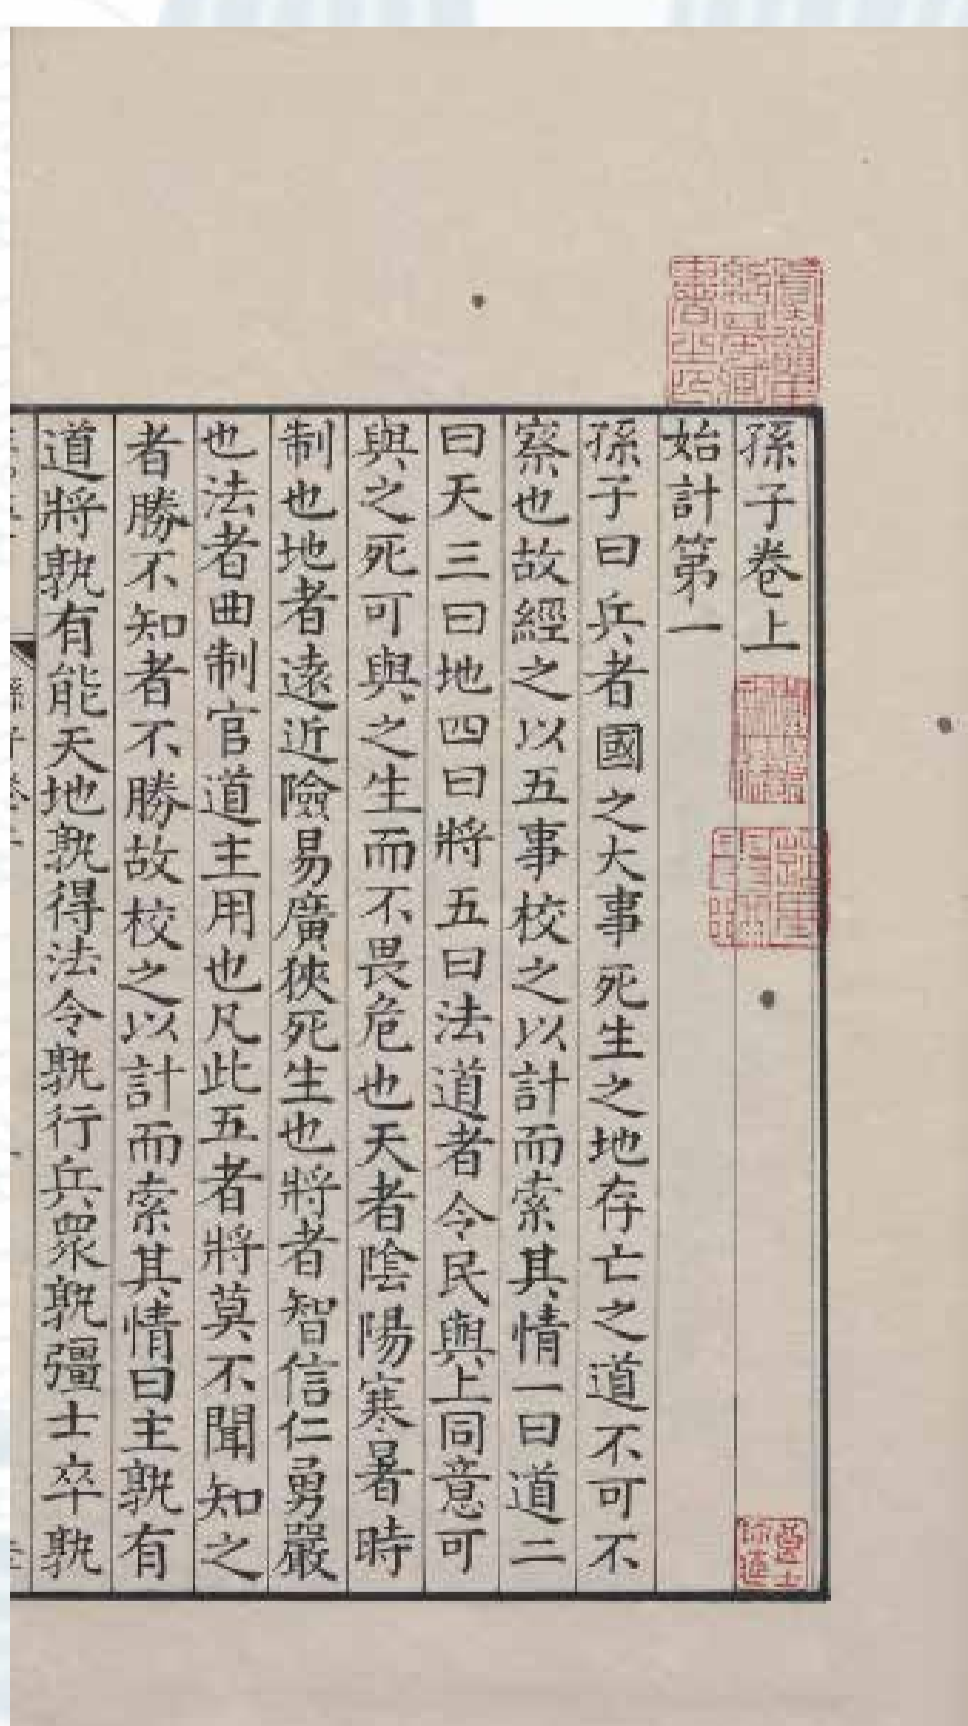 孫子卷上
始計第一
孫子曰兵者國之大事死生之地存亡之道不可不
察也故經之以五事校之以計而索其情一曰道二
曰天三曰地四曰將五曰法道者令民與上同意可
與之死可與之生而不畏危也天者陰陽寒暑時
制也地者遠近險易廣狹死生也將者智信仁勇嚴
也法者曲制官道主用也凡此五者將莫不聞知之
者勝不知者不勝故校之以計而索其情曰主孰有
道將孰有能天地孰得法令孰行兵眾孰彊士卒孰